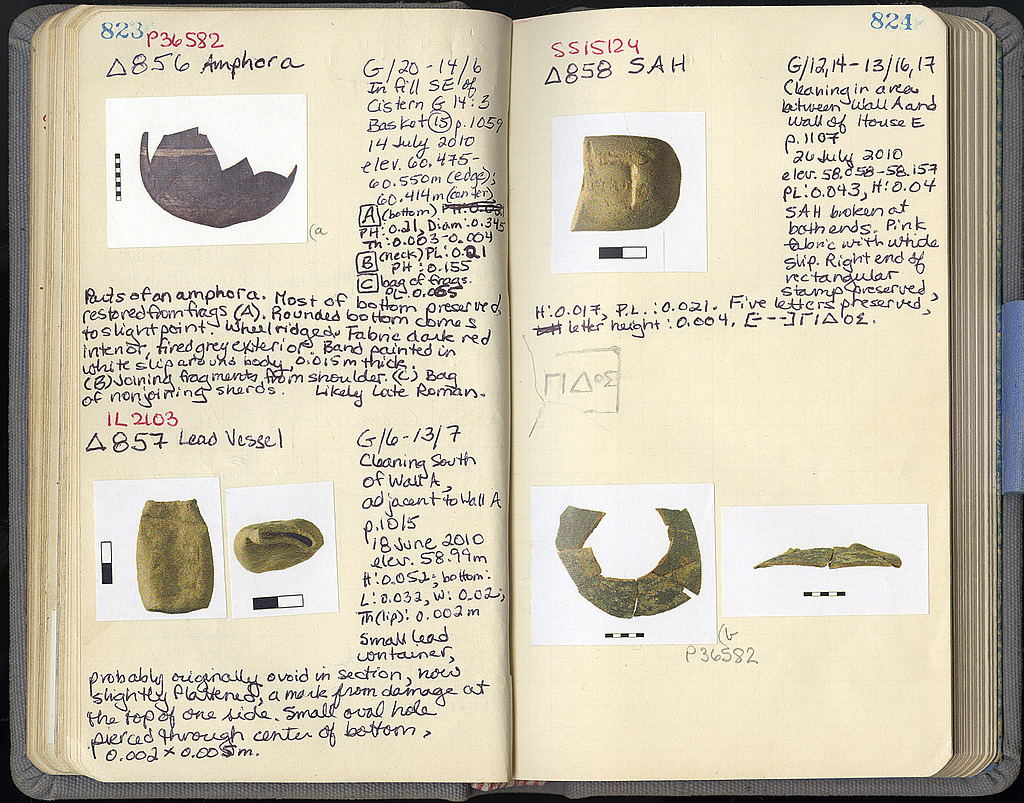 823
P36582
Δ856 Amphora
G/20-14/6
In fill SE of
Cistern G 14:3
Basket 15 p.1059
14 July 2010
elev. 60.475-
60.550m (edge);
60.414m (center)
A (bottom)
PH: 0.21, Diam: 0.345
Th: 0.003-0.004
B (neck) PL: 0.21
PH: 0.155
C bag of frags.
PL: 0.065
(a
Parts of an amphora. Most of bottom preserved,
restored from frags (A). Rounded bottom comes
to slight point. Wheelridged. Fabric dark red
interior, fired grey exterior. Band painted in
white slip around body, 0.015m thick.
(B) Joining fragments from shoulder. (C) Bag
of nonjoining sherds. Likely Late Roman.
IL2103
Δ857 Lead Vessel
G/6-13/7
Cleaning South
of Wall A,
adjacent to Wall A
p.1015
18 June 2010
elev. 58.99m
H: 0.052; bottom:
L: 0.032, W: 0.02;
Th(lip): 0.002m
Small lead
container,
probably originally ovoid in section, now
slightly flattened, a mark from damage at
the top of one side. Small oval hole
pierced through center of bottom,
0.002 × 0.005m.
824
SS15124
Δ858 SAH
G/12,14-13/16,17
Cleaning in area
between Wall A and
Wall of House E
p.1107
26 July 2010
elev. 58.058-58.157
PL: 0.043, H: 0.04
SAH broken at
both ends. Pink
fabric with white
slip. Right end of
rectangular
stamp preserved,
H: 0.017, P.L.: 0.021. Five letters preserved,
letter height: 0.004, [---]ΓΙΔΟΣ.
ΓΙΔΟΣ
(b
P36582